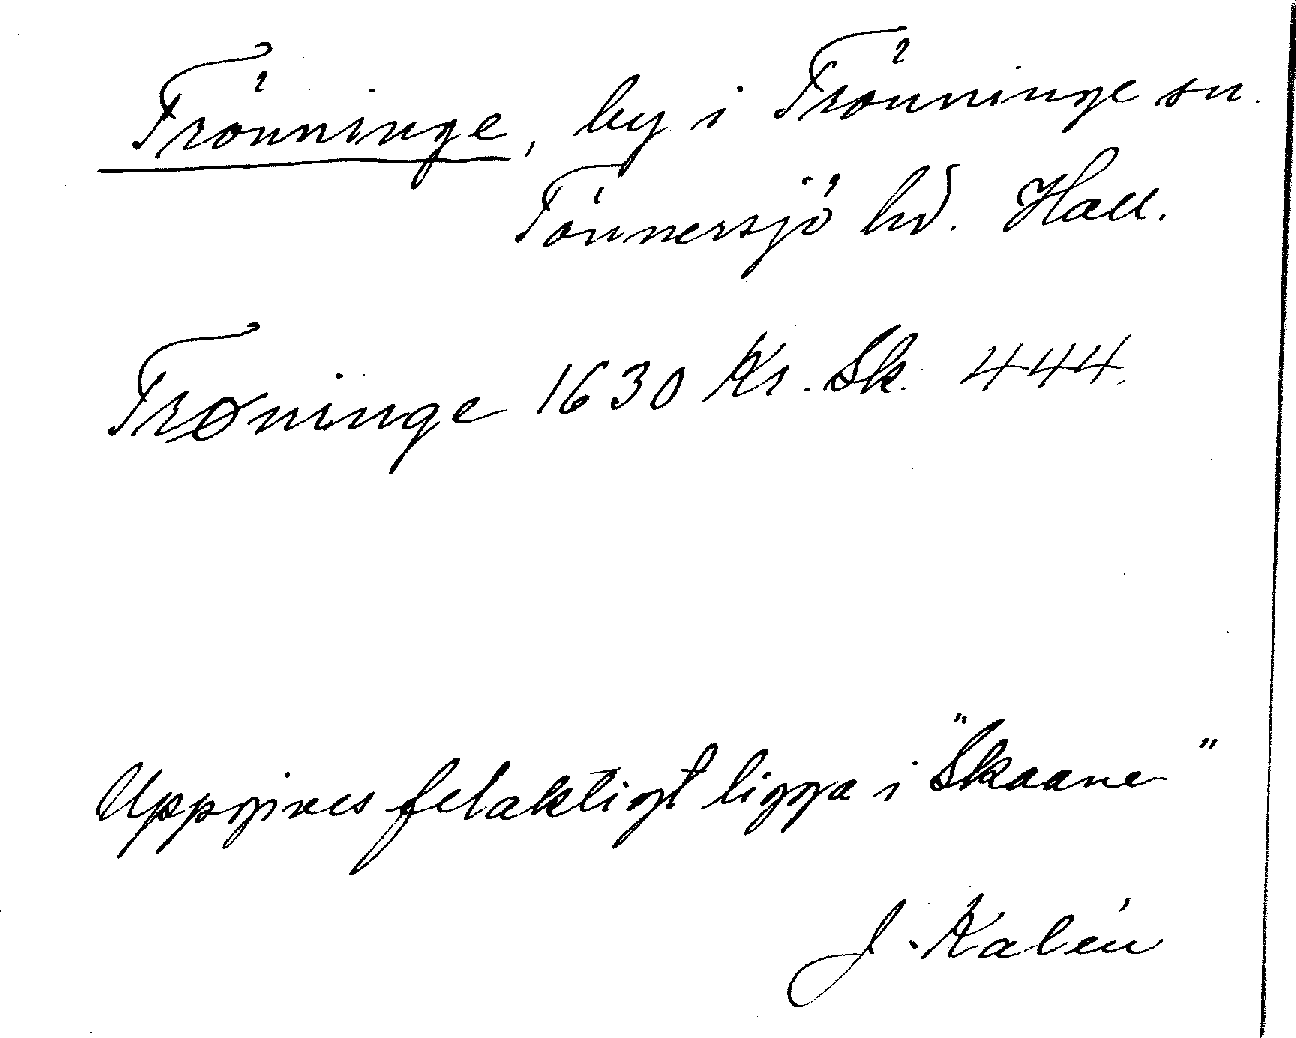 Trönninge, by i Trönninge sn.
Tönnersjö hd. Hall.
Trøninge 1630 Kr. Sk. 444.
Uppgives felaktigt ligga i "Skaane"
J. Kalén